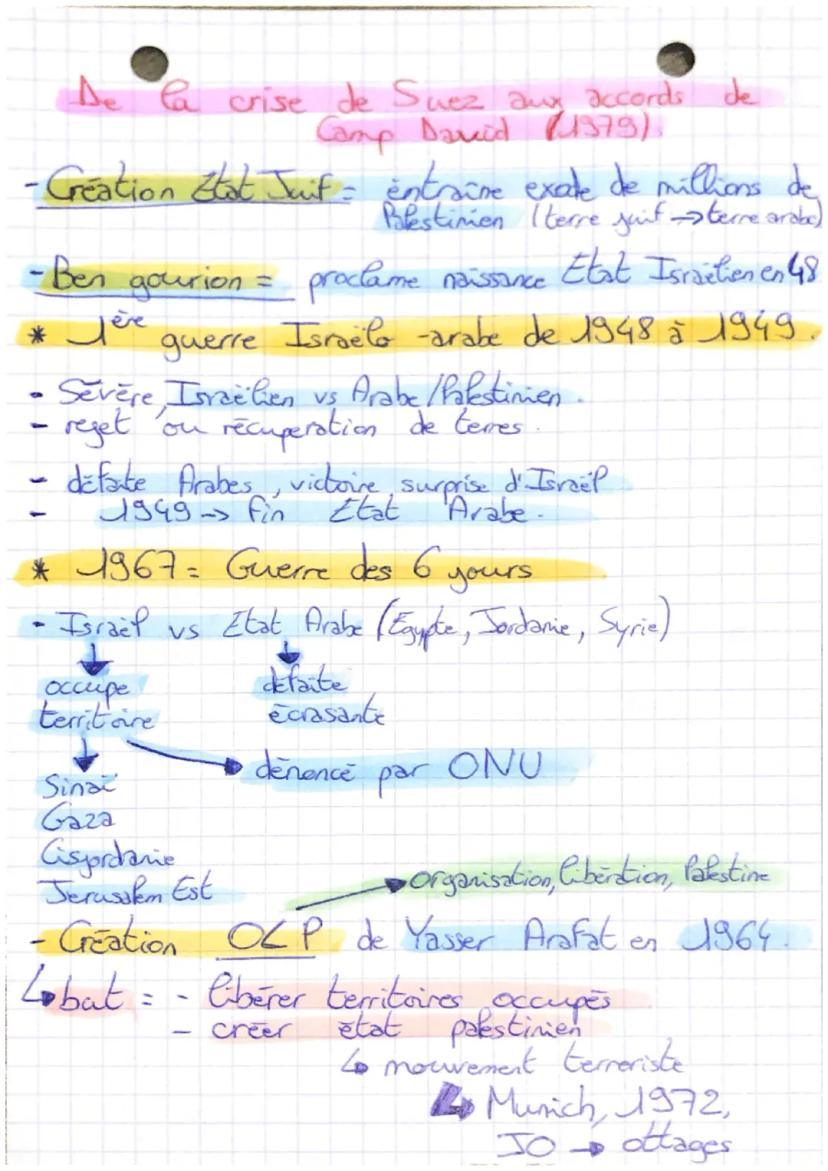 De la crise de Suez aux accords de
Camp David (1979).
- Création Etat Juif = entraîne exode de millions de
Palestinien (terre juif → terre arabe)
- Ben gourion = proclame naissance Etat Israëlien en 48
* 1ère guerre Israëlo-arabe de 1948 à 1949.
- Sévère, Israëlien vs Arabe/Palestinien.
- rejet ou récuperation de terres.
- défaite Arabes, victoire surprise d'Israël
- 1949 → fin Etat Arabe.
* 1967 = Guerre des 6 jours
- Israël vs Etat Arabe (Egypte, Jordanie, Syrie)
occupe défaite
territoire écrasante
dénoncé par ONU
Sinaï
Gaza
Cisjordanie
Jerusalem Est
organisation, libération, Palestine
- Création OLP de Yasser Arafat en 1964.
↳ but = - libérer territoires occupés
- créer état palestinien
↳ mouvement terroriste
↳ Munich, 1972,
JO → ottages